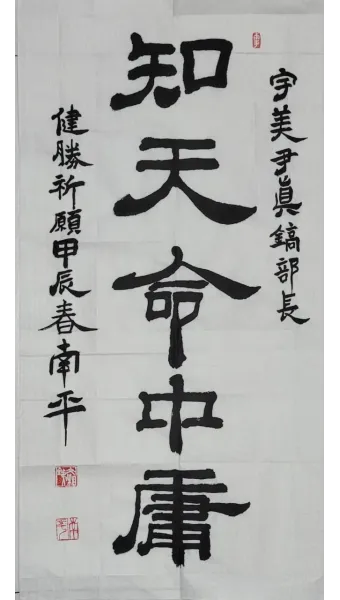 宇美尹眞鎬部長
知天命中庸
健勝祈願甲辰春南平